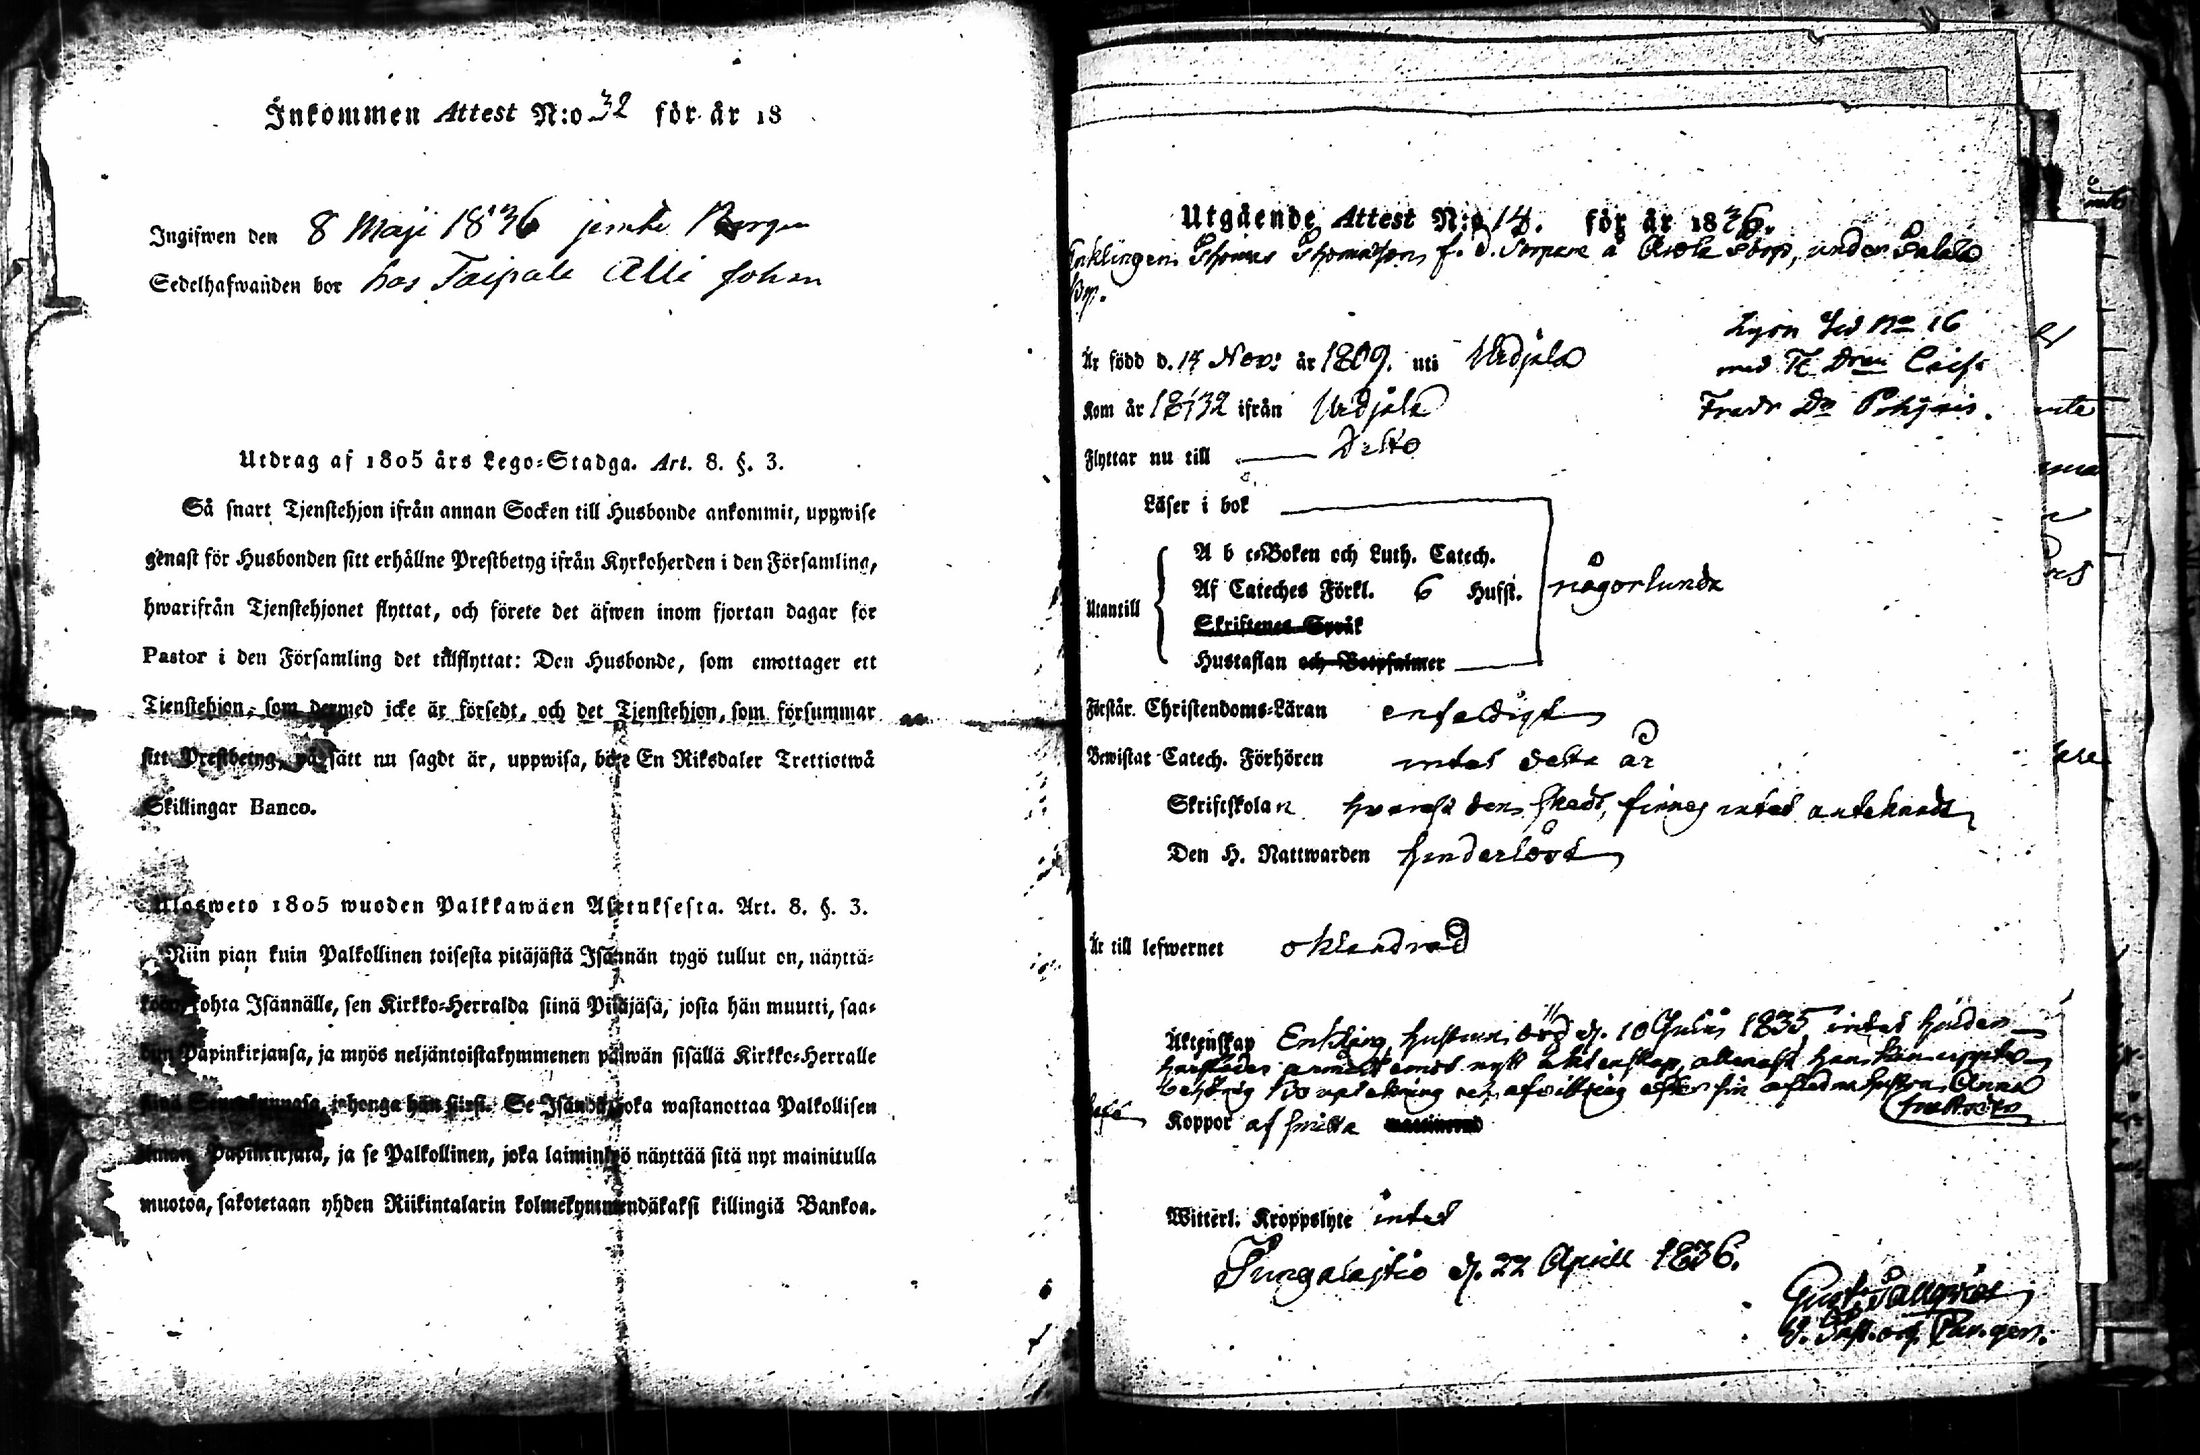 Inkommen Attest N:o 32 för år 18
Ingifwen den 8 Maji 1836 jemte
Sedelhafwanden bor hos Taipale Alli Johan
Utdrag af 1805 års Lego-Stadga. Art. 8. §. 3.
Så snart Tjenstehjon ifrån annan Socken till Husbonde ankommit, uppwise
genast för Husbonden sitt erhållne Prestbetyg ifrån Kyrkoherden i den Församling,
hwarifrån Tjenstehjonet flyttat, och förete det äfwen inom fjortan dagar för
Pastor i den Församling det tillflyttat: Den Husbonde, som emottager ett
Tjenstehjon, som dermed icke är försedt, och det Tjenstehjon, som försummar
sitt Prestbetyg, på sätt nu sagdt är, uppwisa, böte En Riksdaler Trettiotwå
Skillingar Banco.
Ulosweto 1805 wuoden Palkkawäen Asetuksesta. Art. 8. §. 3.
Niin pian kuin Palkollinen toisesta pitäjästä Isännän tygö tullut on, näyttä-
köön kohta Isännälle, sen Kirkko-Herralda siinä Pitäjäsä, josta hän muutti, saa-
dun Papinkirjansa, ja myös neljäntoistakymmenen päiwän sisällä Kirkko-Herralle
siinä Seurakunnasa, johonga hän siirsi. Se Isändä, joka wastanottaa Palkollisen
ilman Papinkirjata, ja se Palkollinen, joka laiminlyö näyttää sitä nyt mainitulla
muotoa, sakotetaan yhden Riikintalarin kolmekymmendäkaksi killingiä Bankoa.
Utgående Attest N:o 14. för år 1836.
Enklingen Thomas Thomasson f. d. Torpare å torp, under
By.
Är född d. 14 Nov: år 1809. uti Urdjala
Kom år 1832 ifrån Urdjala
Flyttar nu till Ditto
No 16
med
Fredr Pohjois.
Läser i bok
Utantill
A b c-Boken och Luth. Catech.
Af Cateches Förkl. 6 Hufst. någorlunda
Skriftenes Språk
Hustaflan och Botpsalmer
Förstår Christendoms-Läran enfaldigt
Bewistat Catech. Förhören intet detta år
Skriftskolan hvarest den skedt, finnes intet anteknadt
Den H. Nattwarden hinderlöst
Är till lefwernet oklandrad
Äktenskap Enkling, hustrun död d. 10 Julii 1835, intet hinder
härstädes anmäldt emot nytt äktenskap, allenast han kan uppte
behörig Bouptekning och afvittring efter sin aflidna hustru Anna
Koppor af smitta vaccinerad
Witterl. Kroppslyte intet
Tungalastio d. 22 Aprill 1836.
Gust.